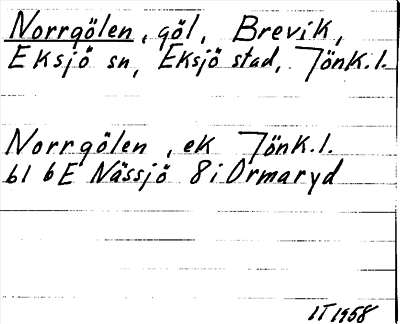 Norrgölen, göl, Brevik,
Eksjö sn, Eksjö stad, Jönk.l.
Norrgölen, ek Jönk.l.
bl 6E Nässjö 8i Ormaryd
IT 1958